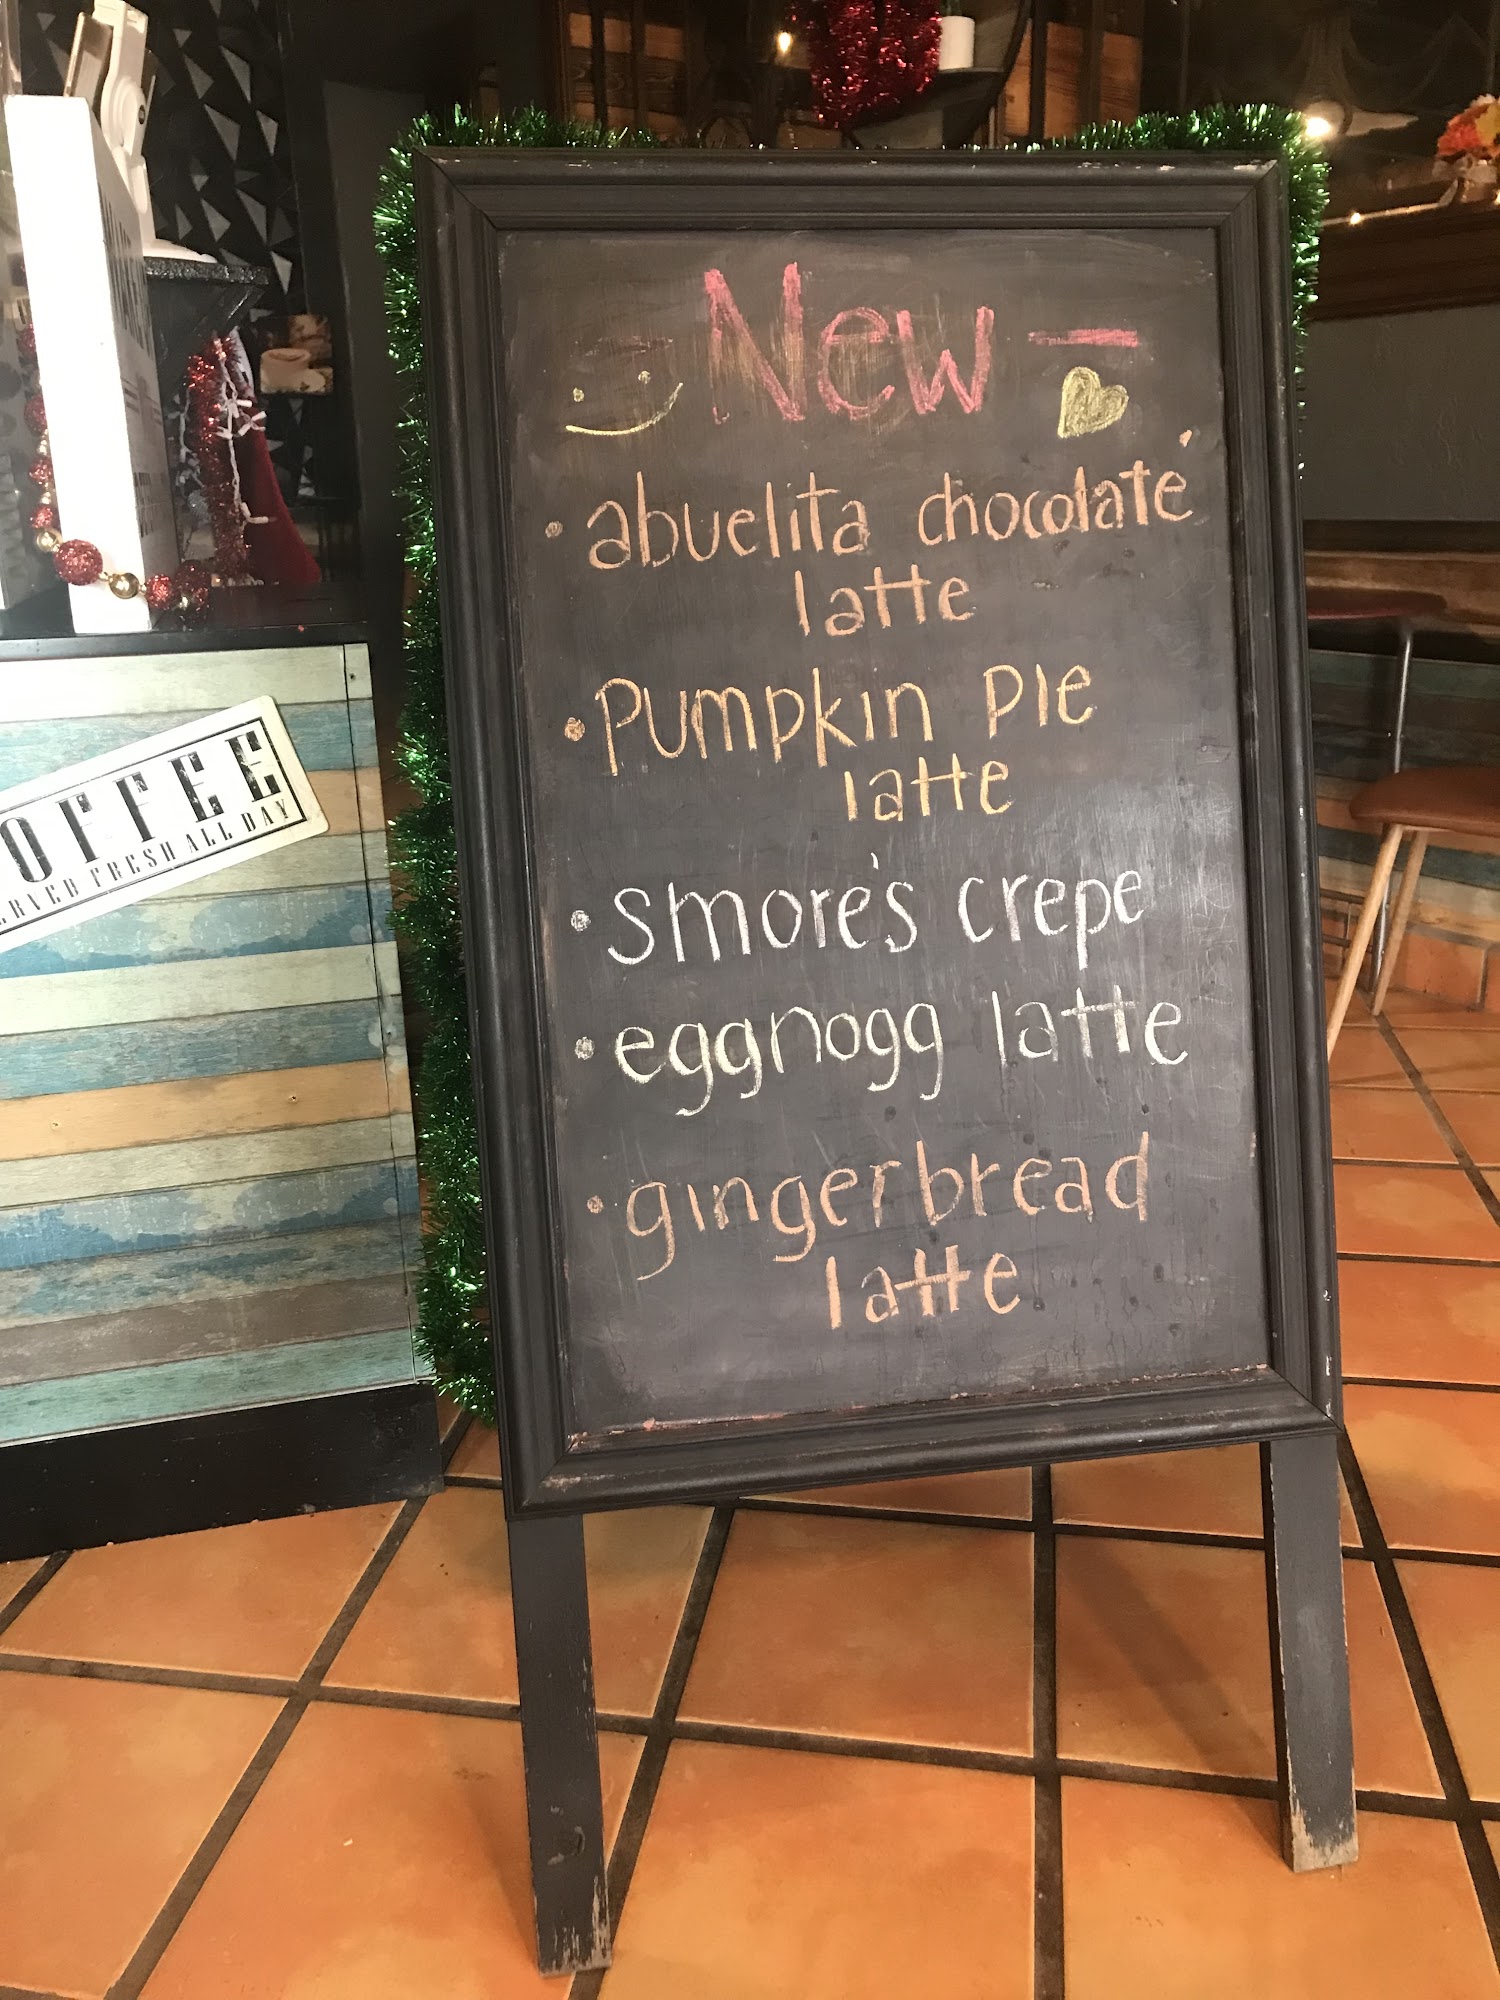 - New -
• abuelita chocolate
latte
• Pumpkin Pie
latte
• Smore's crepe
• eggnogg latte
• gingerbread
latte
OFFEE
ERVED FRESH ALL DAY